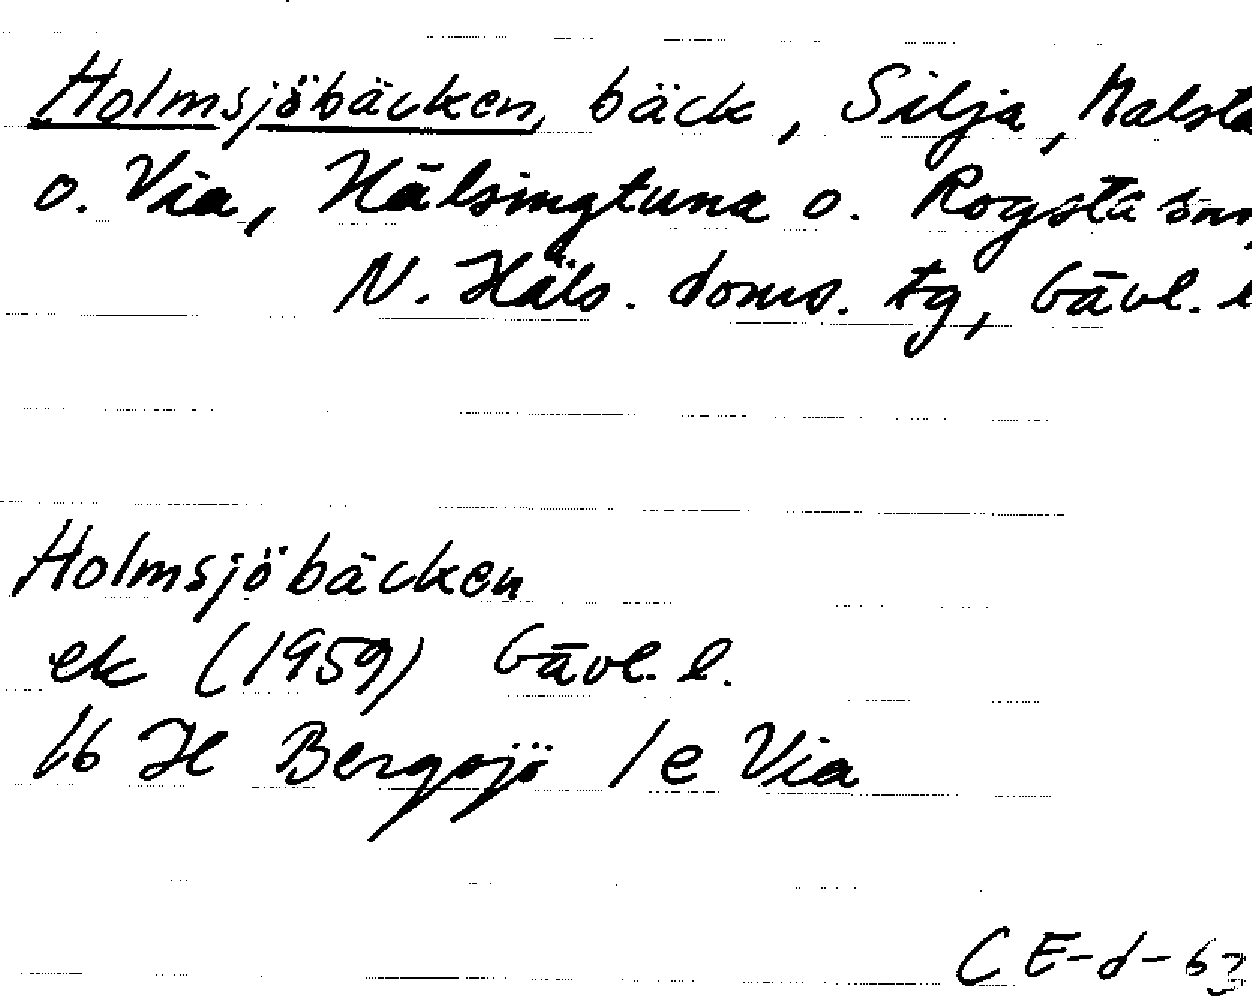 Holmsjöbäcken, bäck, Silja, Malsta
o. Via, Hälsingtuna o. Rogsta snr,
N. Häls. doms. tg, Gävl. l
Holmsjöbäcken
ek (1959) Gävl. l.
16 H Bergsjö 1e Via
CE-d-63